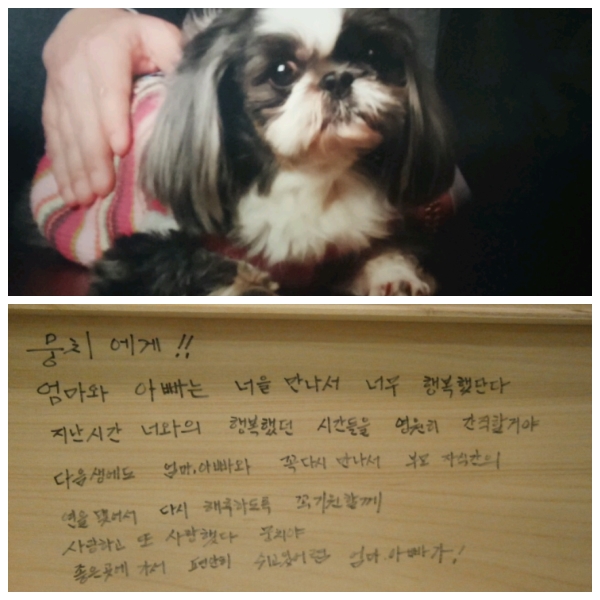 뭉치 에게 !!
엄마와 아빠는 너를 만나서 너무 행복했단다
지난시간 너와의 행복했던 시간들을 영원히 간직할거야
다음생에도 엄마.아빠와 꼭다시 만나서 부모 자식간의
연을 맺어서 다시 행복하도록 꼭기원할께
사랑하고 또 사랑했다 뭉치야
좋은곳에 가서 편안히 쉬고있어렴 엄마.아빠가!